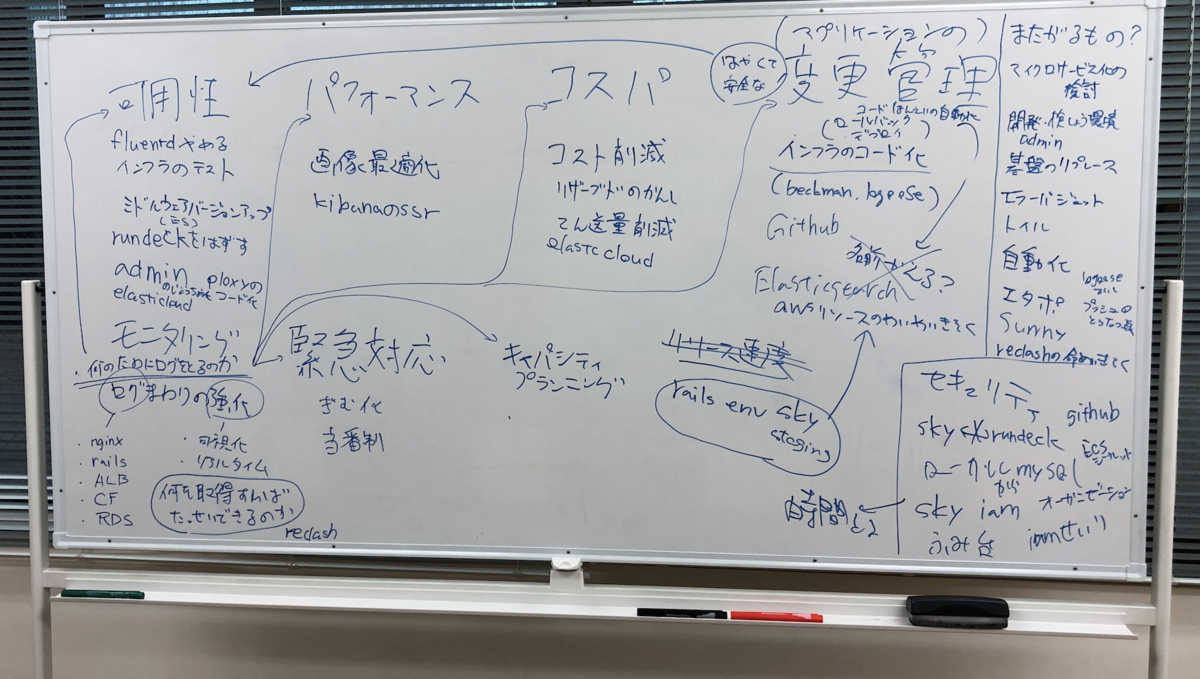 可用性
fluentdやめる
インフラのテスト
ミドルウェアバージョンアップ
(ES)
rundeckをはずす
admin
ploxyの
コード化
elasticloud
モニタリング
・何のためにログをとるのか
ログまわりの強化
・nginx
・rails
・ALB
・CF
・RDS
・可視化
・リアルタイム
何を取得すれば
たっせいできるのか
redash
パフォーマンス
画像最適化
kibanaのssr
緊急対応
ぎむ化
当番制
コスパ
コスト削減
リザーブドのかんし
てん送量削減
elastc cloud
キャパシティ
プランニング
はやくて
安全な
(アプリケーションの)
変更管理
コードはんえいの自動化
(ロールバック
・デプロイ)
インフラのコード化
(beckman, logoose)
Github
名前がくる?
Elasticsearch
awsリソースのわいわいきそく
リリース速度
rails env sky
staging
時間と2
またがるもの?
マイクロサービス化の
検討
開発・けんしょう環境
admin
基盤のリプレース
エラーバジェット
トイル
自動化
エタボ
Sunny
redashの命めいきそく
セキュリティ
github
sky rundeck
ローカルmysql
から
sky iam
オーガニゼーション
ふみ台
iamせいり